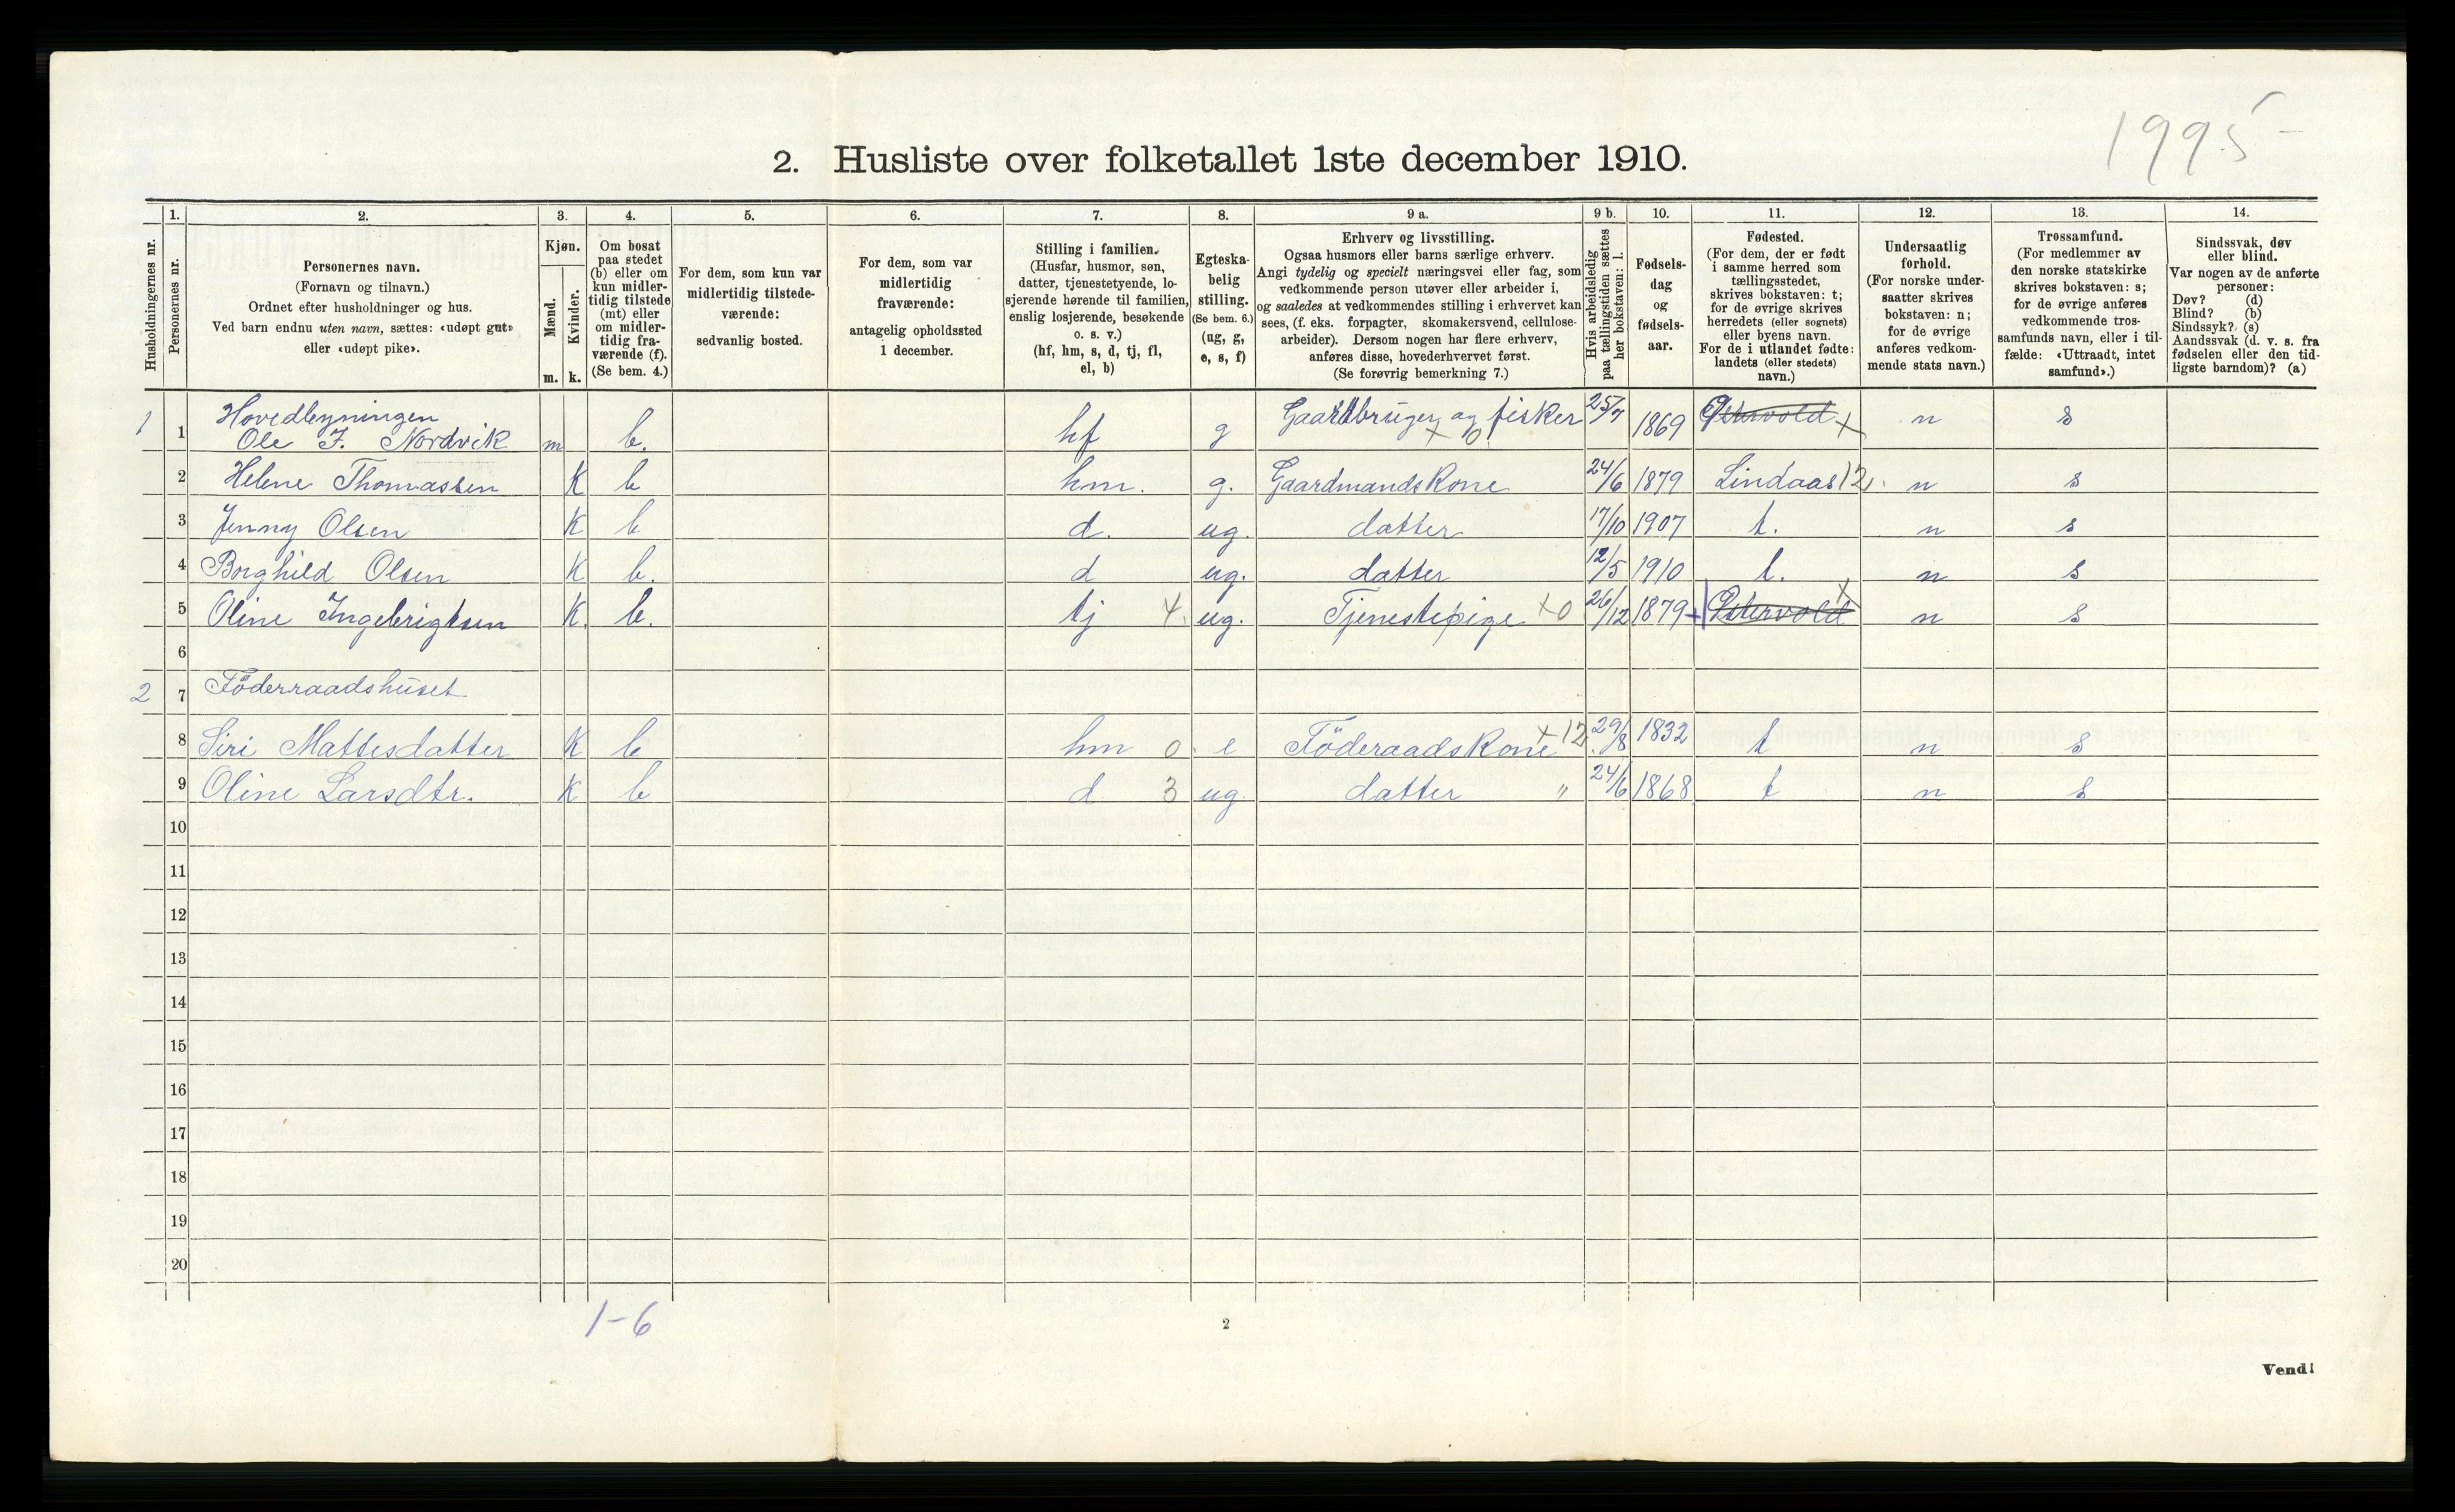 1995
2. Husliste over folketallet 1ste december 1910.
Husholdningernes nr.
1.
Personernes nr.
2.
Personernes navn.
(Fornavn og tilnavn.)
Ordnet efter husholdninger og hus.
Ved barn endnu uten navn, sættes: «udøpt gut»
eller «udøpt pike».
3.
Kjøn.
Mænd.
Kvinder.
m. k.
4.
Om bosat
paa stedet
(b) eller om
kun midler-
tidig tilstede
(mt) eller
om midler-
tidig fra-
værende (f).
(Se bem. 4.)
5.
For dem, som kun var
midlertidig tilstede-
værende:
sedvanlig bosted.
6.
For dem, som var
midlertidig
fraværende:
antagelig opholdssted
1 december.
7.
Stilling i familien.
(Husfar, husmor, søn,
datter, tjenestetyende, lo-
sjerende hørende til familien,
enslig losjerende, besøkende
o. s. v.)
(hf, hm, s, d, tj, fl,
el, b)
8.
Egteska-
belig
stilling.
(Se bem. 6.)
(ug, g,
e, s, f)
9 a.
Erhverv og livsstilling.
Ogsaa husmors eller barns særlige erhverv.
Angi tydelig og specielt næringsvei eller fag, som
vedkommende person utøver eller arbeider i,
og saaledes at vedkommendes stilling i erhvervet kan
sees, (f. eks. forpagter, skomakersvend, cellulose-
arbeider). Dersom nogen har flere erhverv,
anføres disse, hovederhvervet først.
(Se forøvrig bemerkning 7.)
9 b.
Hvis arbeidsledig
paa tællingstiden sættes
her bokstaven: l.
10.
Fødsels-
dag
og
fødsels-
aar.
11.
Fødested.
(For dem, der er født
i samme herred som
tællingsstedet,
skrives bokstaven: t;
for de øvrige skrives
herredets (eller sognets)
eller byens navn.
For de i utlandet fødte:
landets (eller stedets)
navn.)
12.
Undersaatlig
forhold.
(For norske under-
saatter skrives
bokstaven: n;
for de øvrige
anføres vedkom-
mende stats navn.)
13.
Trossamfund.
(For medlemmer av
den norske statskirke
skrives bokstaven: s;
for de øvrige anføres
vedkommende tros-
samfunds navn, eller i til-
fælde: «Uttraadt, intet
samfund».)
14.
Sindssvak, døv
eller blind.
Var nogen av de anførte
personer:
Døv? (d)
Blind? (b)
Sindssyk? (s)
Aandssvak (d. v. s. fra
fødselen eller den tid-
ligste barndom)? (a)
Hovedbygningen
1 1 Ole J. Nordvik m b. hf g Gaardbruger og fisker x 0 25/7 1869 Østervold x n s
2 Helene Thomassen K b hm. g. GaardmandsKone 24/6 1879 Lindaas 12. n s
3 Jenny Olsen K b d. ug. datter 17/10 1907 t. n s
4 Borghild Olsen K b. d ug. datter 12/5 1910 t. n s
5 Oline Ingebrigtsen K. b. tj 4. ug. Tjenestepige x0 26/12 1879 + Østervold x n s
6
2 7 Föderraadshuset
8 Siri Mattesdatter K b hm 0. e FöderaadsKone x12 29/8 1832 t n s
9 Oline Larsdtr. K b d 3 ug. datter " 24/6 1868 t n s
10
11
12
13
14
15
16
17
18
19
20
1-6
2
Vend!